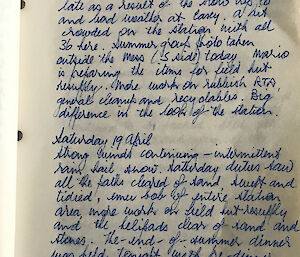 late as a result of the
and bad weather at Casey. A bit
crowded on the station with all
36 here. Summer group photo taken
outside the Mess (S side) today. Mario
is preparing the items for field hut
resupply. More work on rubbish RTA,
general cleanup and recyclables. Big
difference in the look of the station.
Saturday 19 April
Strong winds continuing - intermittent
rain hail snow. Saturday duties saw
all the paths cleared of sand, swept and
tidied, emu bob of entire station
area, more work on field hut resupply
and the helipads clear of sand and
stones. The end-of-summer dinner
was held tonight with